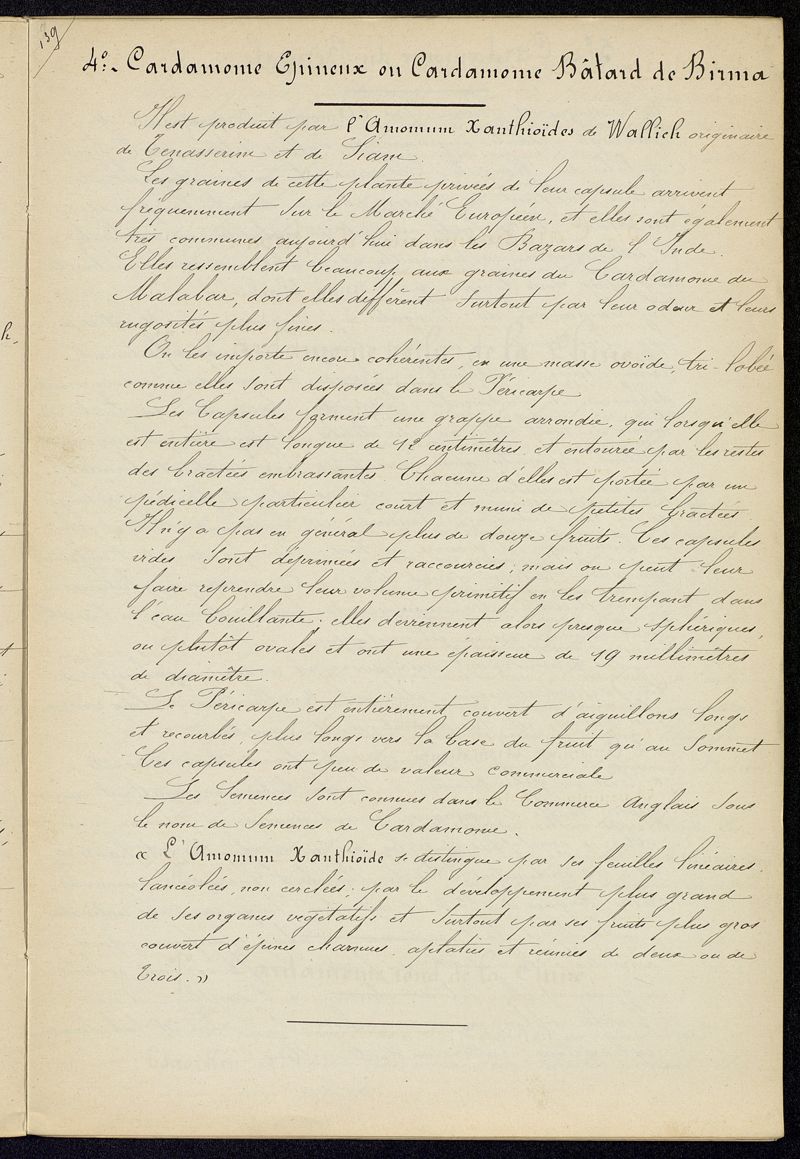 139
4º- Cardamome Epineux ou Cardamome Bâtard de Birma
Il est produit par l'Amomum Xanthioïdes de Wallich originaire
de Tenasserim et de Siam.
Les graines de cette plante privées de leur capsule arrivent
fréquemment sur le Marché Européen, et elles sont également
très communes aujourd'hui dans les Bazars de l'Inde.
Elles ressemblent beaucoup aux graines du Cardamome du
Malabar, dont elles diffèrent surtout par leur odeur et leurs
rugosités plus fines.
On les importe encore cohérentes, en une masse ovoïde, tri-lobée
comme elles sont disposées dans le Péricarpe
Les Capsules forment une grappe arrondie, qui lorsqu'elle
est entière est longue de 12 centimètres et entourée par les restes
des bractées embrassantes Chacune d'elles est portée par un
pédicelle particulier court et muni de petites bractées.
Il n'y a pas en général plus de douze fruits. Ces capsules
vides sont déprimées et raccourcies; mais on peut leur
faire reprendre leur volume primitif en les trempant dans
l'eau bouillante. elles deviennent alors presque sphériques,
ou plutôt ovales et ont une épaisseur de 19 millimètres
de diamètre.
Le Péricarpe est entièrement couvert d'aiguillons longs
et recourbés, plus longs vers la base du fruit qu'au sommet
Ces capsules ont peu de valeur commerciale
Les Semences sont connues dans le Commerce Anglais sous
le nom de Semences de Cardamome.
« L'Amomum Xanthioïde se distingue par ses feuilles linéaires.
lancéolées, non cerclées; par le développement plus grand
de ses organes végétatifs et surtout par ses fruits plus gros
couvert d'épines charnues aplaties et réunies de deux ou de
trois. »